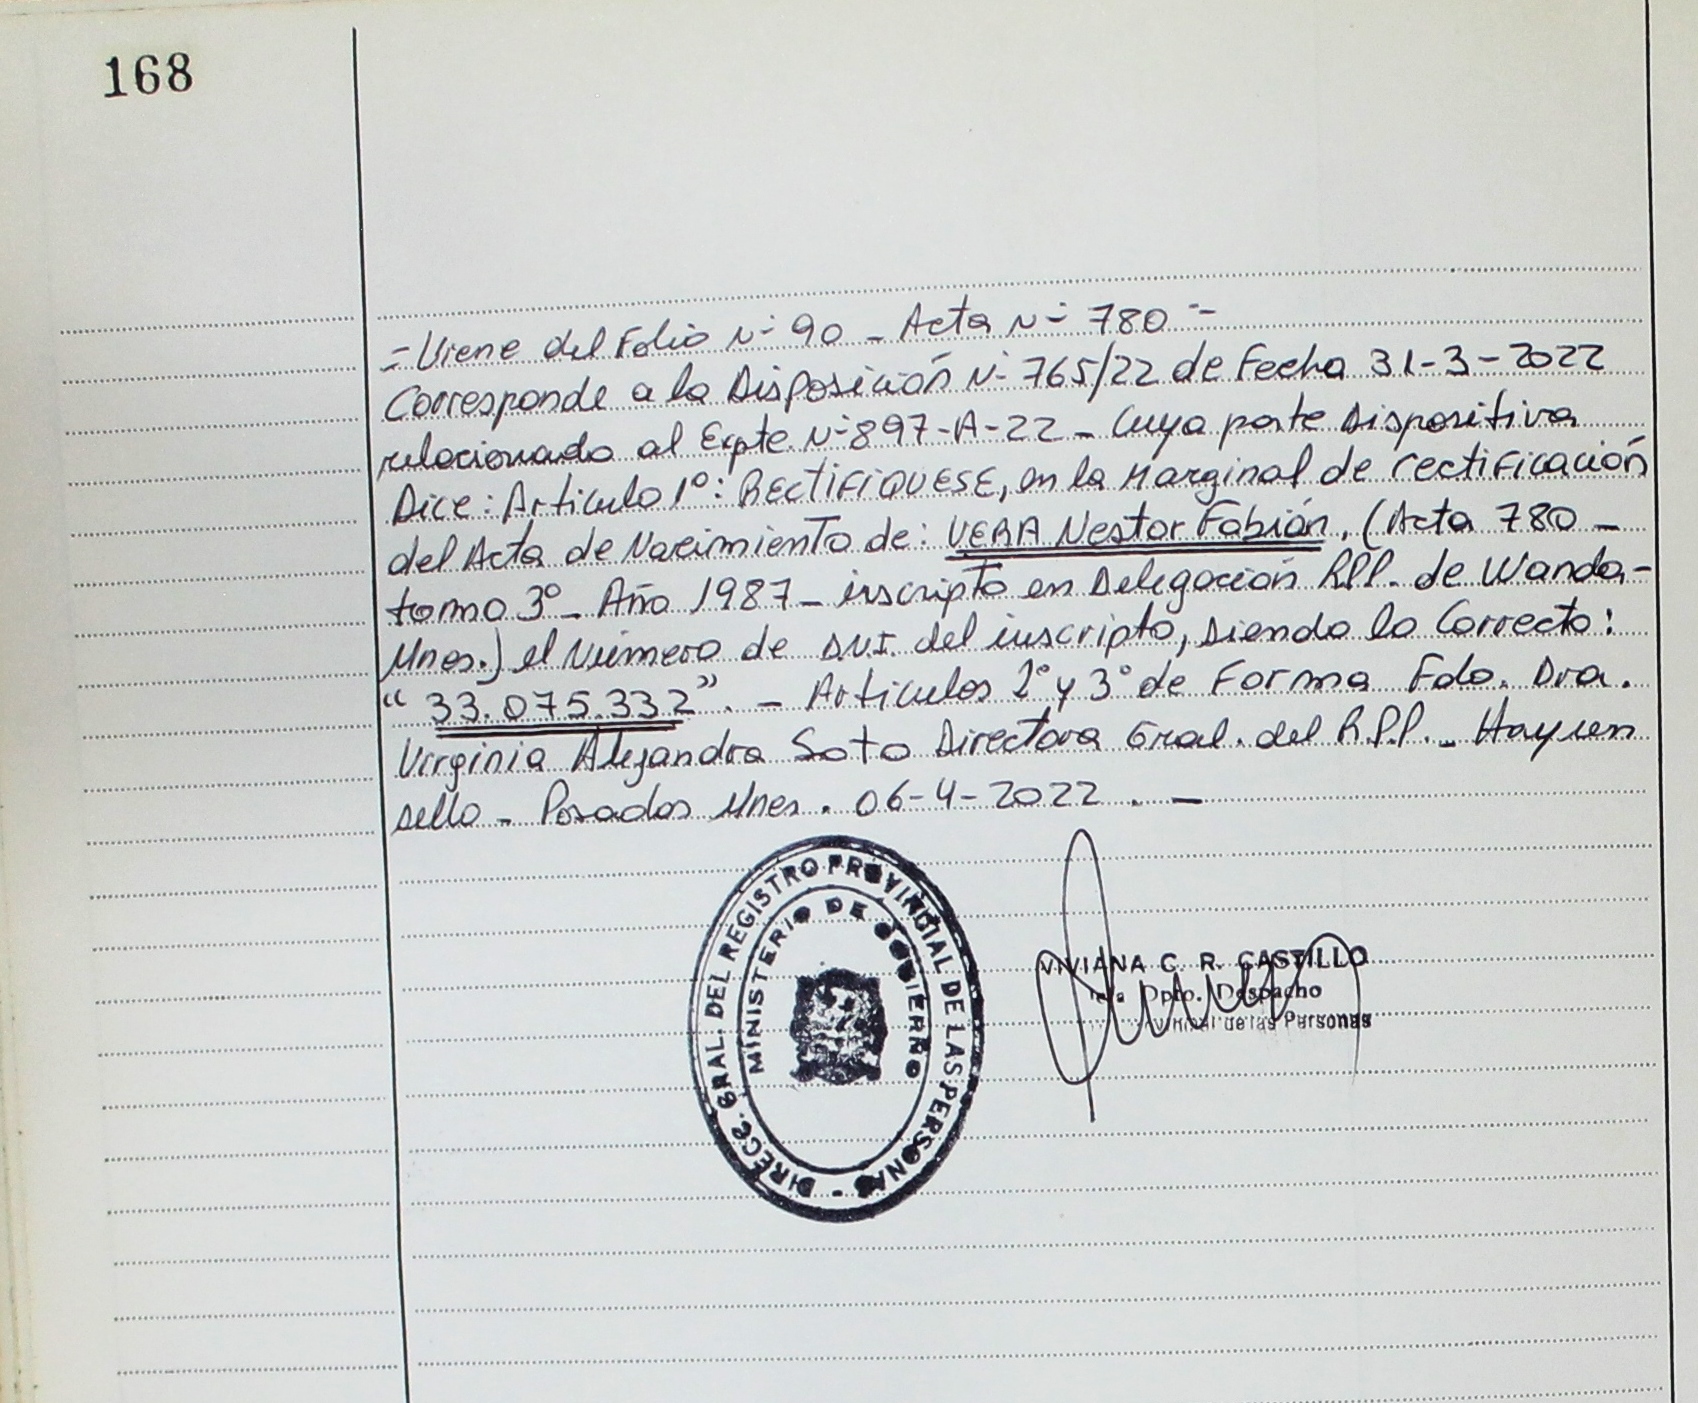 168
= Viene del Folio N- 90 - Acta N- 780 =
Corresponde a la Disposición N- 765/22 de Fecha 31-3-2022
relacionado al Expte N- 897-A-22 - Cuya parte Dispositiva
Dice: Artículo 1°: RECTIFIQUESE, en la Marginal de rectificación
del Acta de Nacimiento de: VERA Nestor Fabián, (Acta 780 -
tomo 3° - Año 1987 - inscripto en Delegación R.P.P. de Wanda -
Mnes.) el Número de D.N.I. del inscripto, siendo lo Correcto:
"33.075.332". - Artículos 2° y 3° de Forma Fdo. Dra.
Virginia Alejandra Soto Directora Gral. del R.P.P. - Hay un
sello - Posadas Mnes. 06-4-2022. -
DIRECC. GRAL. DEL REGISTRO PROVINCIAL DE LAS PERSONAS -
MINISTERIO DE GOBIERNO
VIVIANA C. R. CASTILLO
Dpto. Despacho
de las Personas